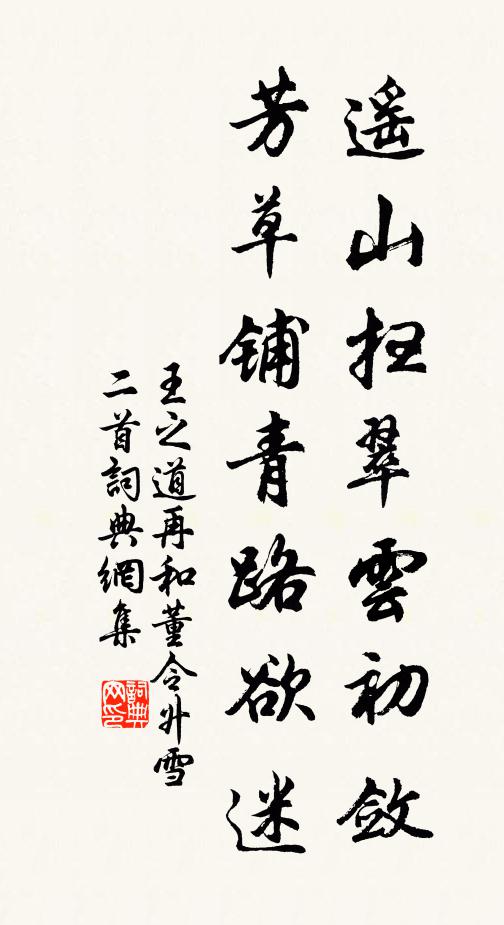 遥山扫翠雲初斂
芳草铺青路欲迷
王之道再和董令升雪
二首詞典網集
詞典网印